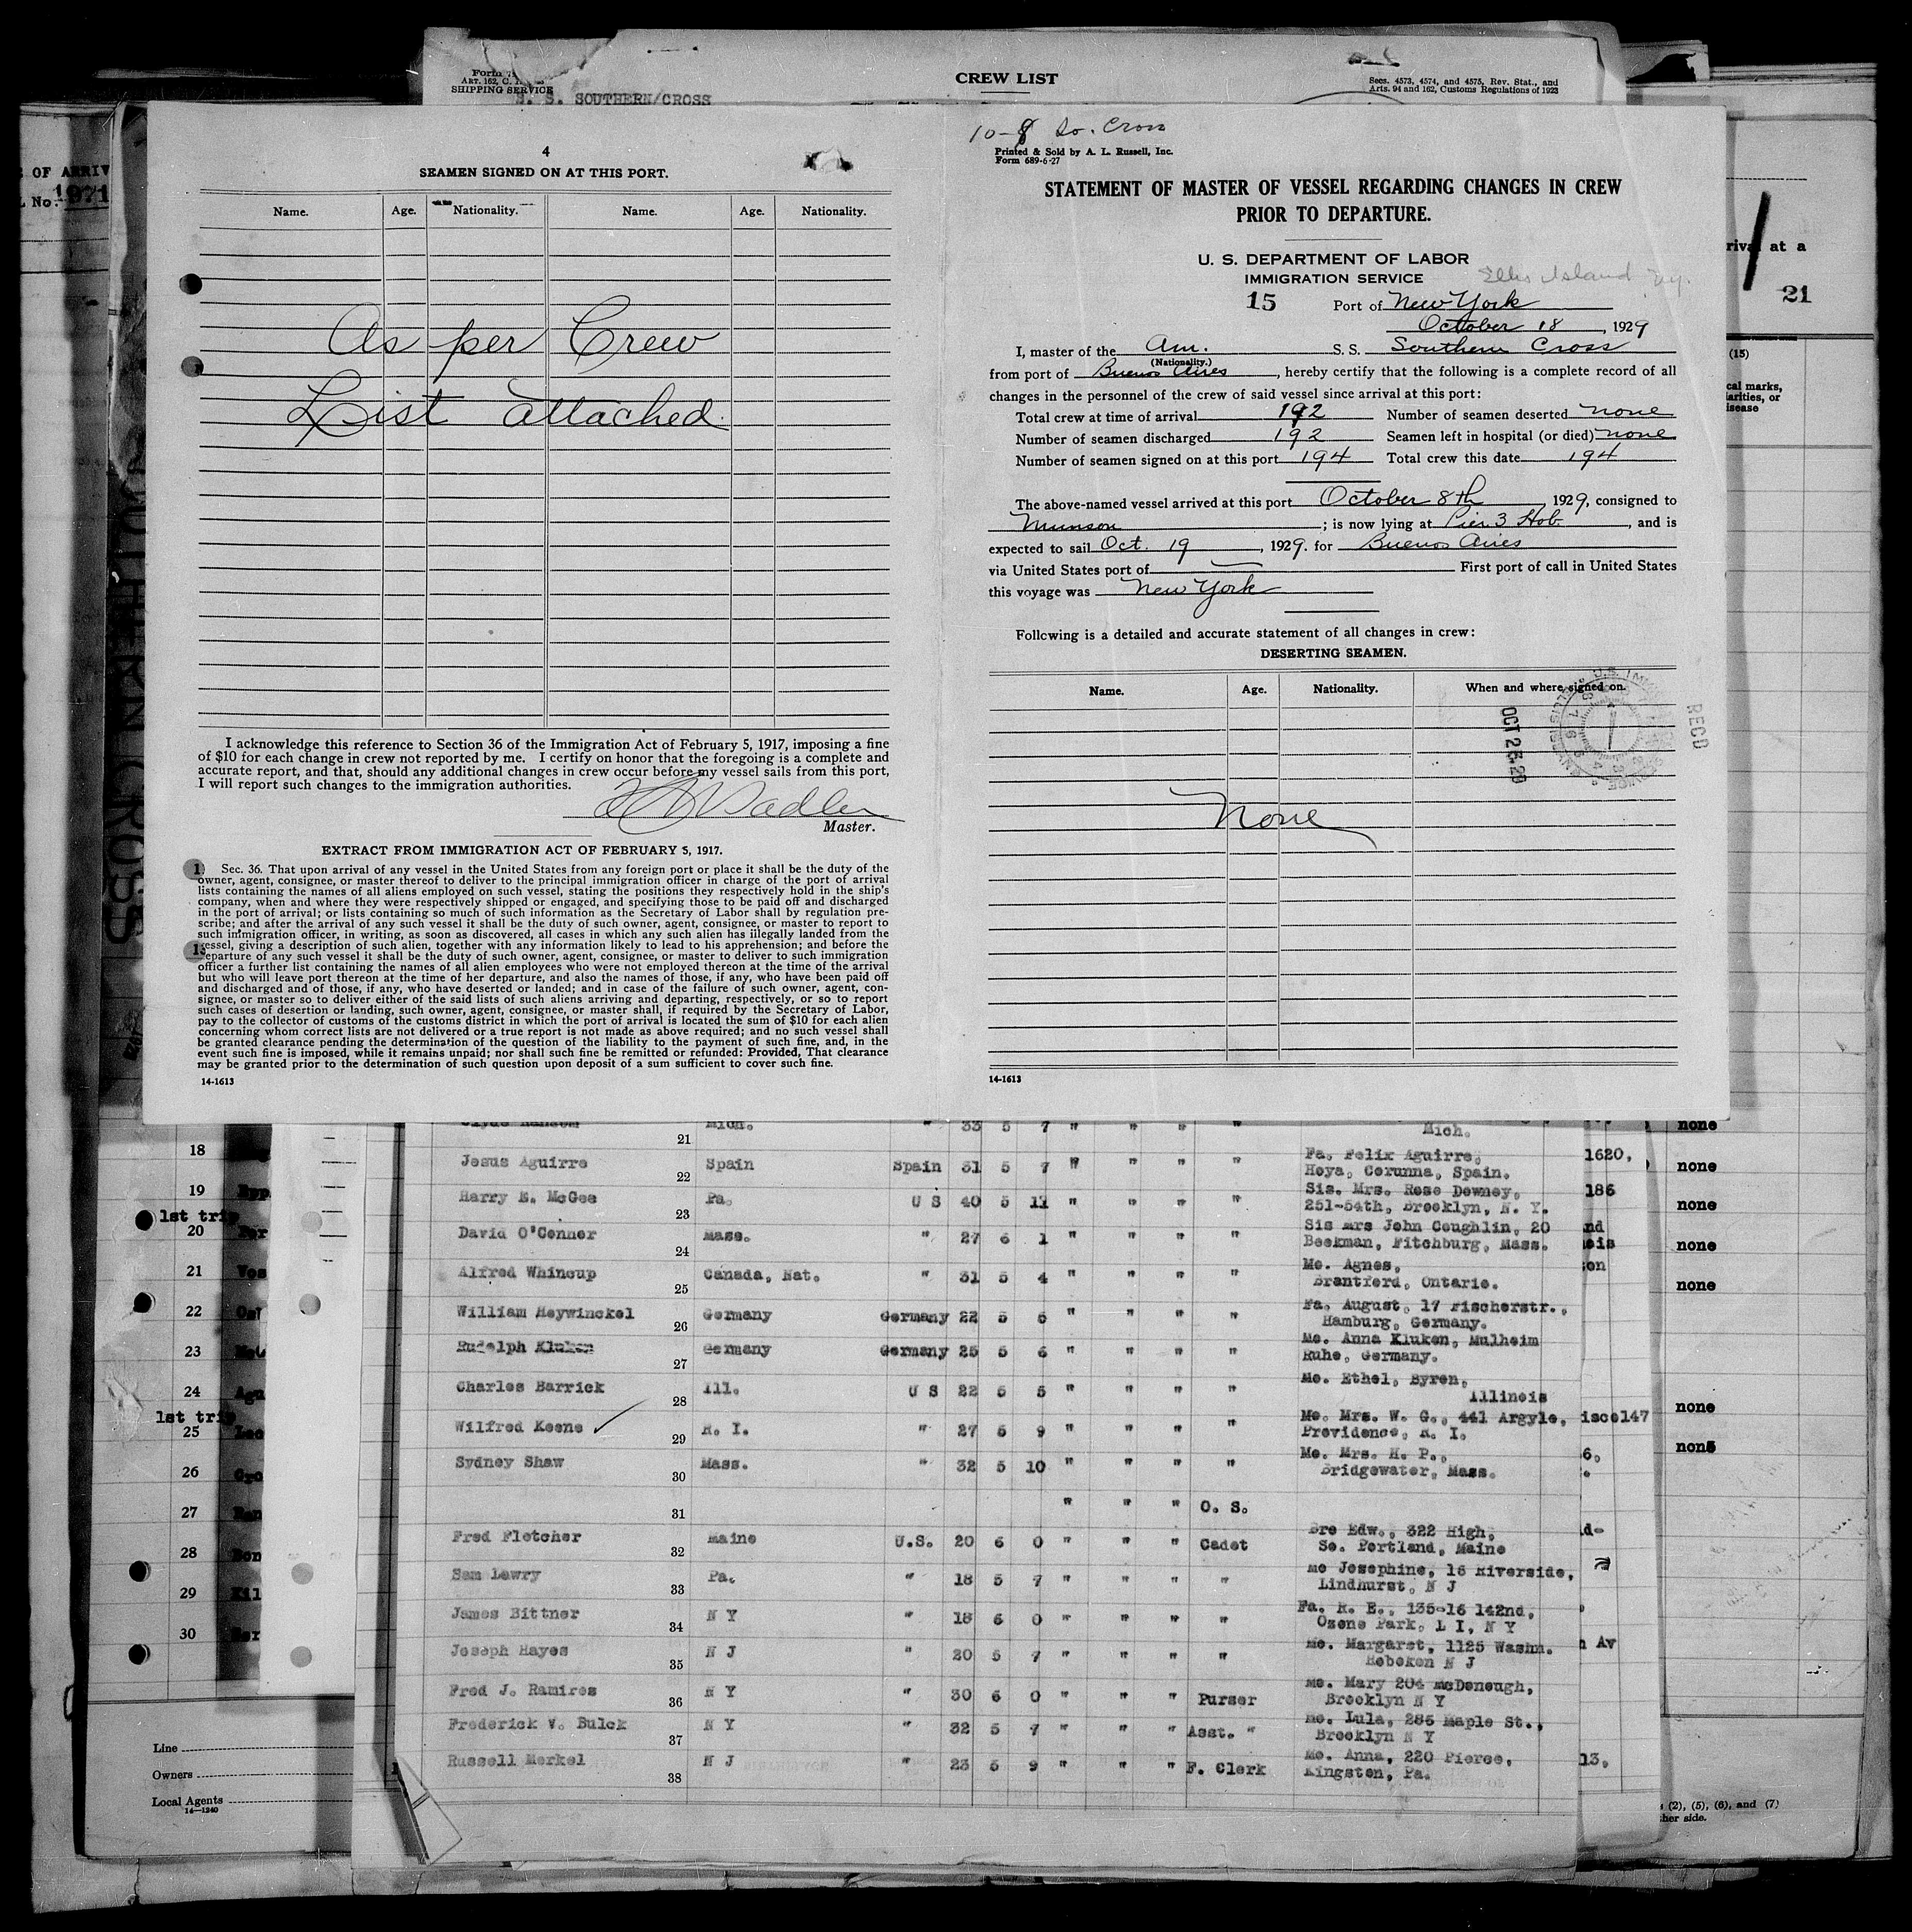 CREW LIST
SHIPPING SERVICE
S. S. SOUTHERN/CROSS
Secs. 4573, 4574, and 4575, Rev. Stat., and
Arts. 94 and 162, Customs Regulations of 1923
4
SEAMEN SIGNED ON AT THIS PORT.
Name. Age. Nationality. Name. Age. Nationality.
As per Crew
List attached
I acknowledge this reference to Section 36 of the Immigration Act of February 5, 1917, imposing a fine
of $10 for each change in crew not reported by me. I certify on honor that the foregoing is a complete and
accurate report, and that, should any additional changes in crew occur before my vessel sails from this port,
I will report such changes to the immigration authorities.
Master.
EXTRACT FROM IMMIGRATION ACT OF FEBRUARY 5, 1917.
Sec. 36. That upon arrival of any vessel in the United States from any foreign port or place it shall be the duty of the
owner, agent, consignee, or master thereof to deliver to the principal immigration officer in charge of the port of arrival
lists containing the names of all aliens employed on such vessel, stating the positions they respectively hold in the ship's
company, when and where they were respectively shipped or engaged, and specifying those to be paid off and discharged
in the port of arrival; or lists containing so much of such information as the Secretary of Labor shall by regulation pre-
scribe; and after the arrival of any such vessel it shall be the duty of such owner, agent, consignee, or master to report to
such immigration officer, in writing, as soon as discovered, all cases in which any such alien has illegally landed from the
vessel, giving a description of such alien, together with any information likely to lead to his apprehension; and before the
departure of any such vessel it shall be the duty of such owner, agent, consignee, or master to deliver to such immigration
officer a further list containing the names of all alien employees who were not employed thereon at the time of the arrival
but who will leave port thereon at the time of her departure, and also the names of those, if any, who have been paid off
and discharged and of those, if any, who have deserted or landed; and in case of the failure of such owner, agent, con-
signee, or master so to deliver either of the said lists of such aliens arriving and departing, respectively, or so to report
such cases of desertion or landing, such owner, agent, consignee, or master shall, if required by the Secretary of Labor,
pay to the collector of customs of the customs district in which the port of arrival is located the sum of $10 for each alien
concerning whom correct lists are not delivered or a true report is not made as above required; and no such vessel shall
be granted clearance pending the determination of the question of the liability to the payment of such fine, and, in the
event such fine is imposed, while it remains unpaid; nor shall such fine be remitted or refunded: Provided, That clearance
may be granted prior to the determination of such question upon deposit of a sum sufficient to cover such fine.
14-1613
10-8 So. Cross
Printed & Sold by A. L. Russell, Inc.
Form 689-6-27
STATEMENT OF MASTER OF VESSEL REGARDING CHANGES IN CREW
PRIOR TO DEPARTURE.
U. S. DEPARTMENT OF LABOR
IMMIGRATION SERVICE
Ellis Island N.Y.
15 Port of New York
October 18, 1929
I, master of the Am. S. S. Southern Cross
(Nationality.)
from port of Buenos Aires, hereby certify that the following is a complete record of all
changes in the personnel of the crew of said vessel since arrival at this port:
Total crew at time of arrival 192 Number of seamen deserted none
Number of seamen discharged 192 Seamen left in hospital (or died) none
Number of seamen signed on at this port 194 Total crew this date 194
The above-named vessel arrived at this port October 8th, 1929, consigned to
Munson; is now lying at Pier 3 Hob, and is
expected to sail Oct. 19, 1929. for Buenos Aires
via United States port of First port of call in United States
this voyage was New York
Following is a detailed and accurate statement of all changes in crew:
DESERTING SEAMEN.
Name. Age. Nationality. When and where signed on.
RECD
None
14-1613
21 Mich. " 33 5 7 " " " " Mich.
Jesus Aguirre 22 Spain Spain 31 5 7 " " " " Fa. Felix Aguirre,
Hoya, Corunna, Spain.
Harry E. McGee 23 Pa. U S 40 5 11 " " " " Sis. Mrs. Rose Downey,
251-54th, Brooklyn, N. Y.
David O'Conner 24 Mass. " 27 6 1 " " " " Sis mrs John Coughlin, 20
Beekman, Fitchburg, Mass.
Alfred Whincup 25 Canada, Nat. " 31 5 4 " " " " Mo. Agnes,
Brantford, Ontario.
William Heywinckel 26 Germany Germany 22 5 6 " " " " Fa. August, 17 Fischerstr.,
Hamburg, Germany.
Rudolph Kluken 27 Germany Germany 25 5 6 " " " " Mo. Anna Kluken, Mulheim
Ruhe, Germany.
Charles Barrick 28 Ill. U S 22 5 5 " " " " Mo. Ethel, Byron,
Illinois
Wilfred Keene 29 R. I. " 27 5 9 " " " " Mo. Mrs. W. G., 441 Argyle,
Providence, R. I.
Sydney Shaw 30 Mass. " 32 5 10 " " " " Mo. Mrs. H. P.,
Bridgewater, Mass.
31 " " " O. S.
Fred Fletcher 32 Maine U.S. 20 6 0 " " " Cadet Bro Edw., 322 High,
So. Portland, Maine
Sam Lowry 33 Pa. " 18 5 7 " " " " mo Josephine, 16 Riverside,
Lindhurst, N J
James Bittner 34 N Y " 18 6 0 " " " " Fa. R. E., 135-16 142nd,
Ozone Park, L I, N Y
Joseph Hayes 35 N J " 20 5 7 " " " " mo. Margaret, 1125 Washn.
Hoboken N J
Fred J. Ramires 36 N Y " 30 6 0 " " " Purser mo. Mary 204 mcDonough,
Brooklyn N Y
Frederick V. Bulck 37 N Y " 32 5 7 " " " Asst. " mo. Lula, 285 Maple St.,
Brooklyn N Y
Russell Merkel 38 N J " 23 5 9 " " " F. Clerk Mo. Anna, 220 Pierce,
Kingston, Pa.
18
19
1st trip
20
21
22
23
24
1st trip
25
26
27
28
29
30
Line
Owners
Local Agents
14-1240
SOUTHERN CROSS
at a
21
(15)
none
none
none
none
none
none
(2), (5), (6), and (7)
side.